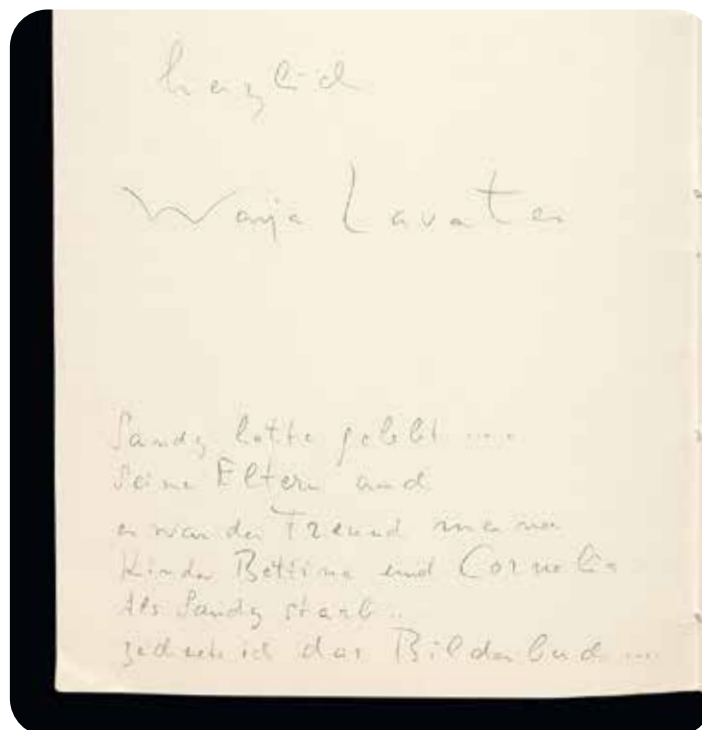 herzlich
Warja Lavater
Sandy hatte gelebt ....
seine Eltern auch
er war der Freund meiner
Kinder Bettina und Cornelia
Als Sandy starb ..
ich das Bilderbuch ....